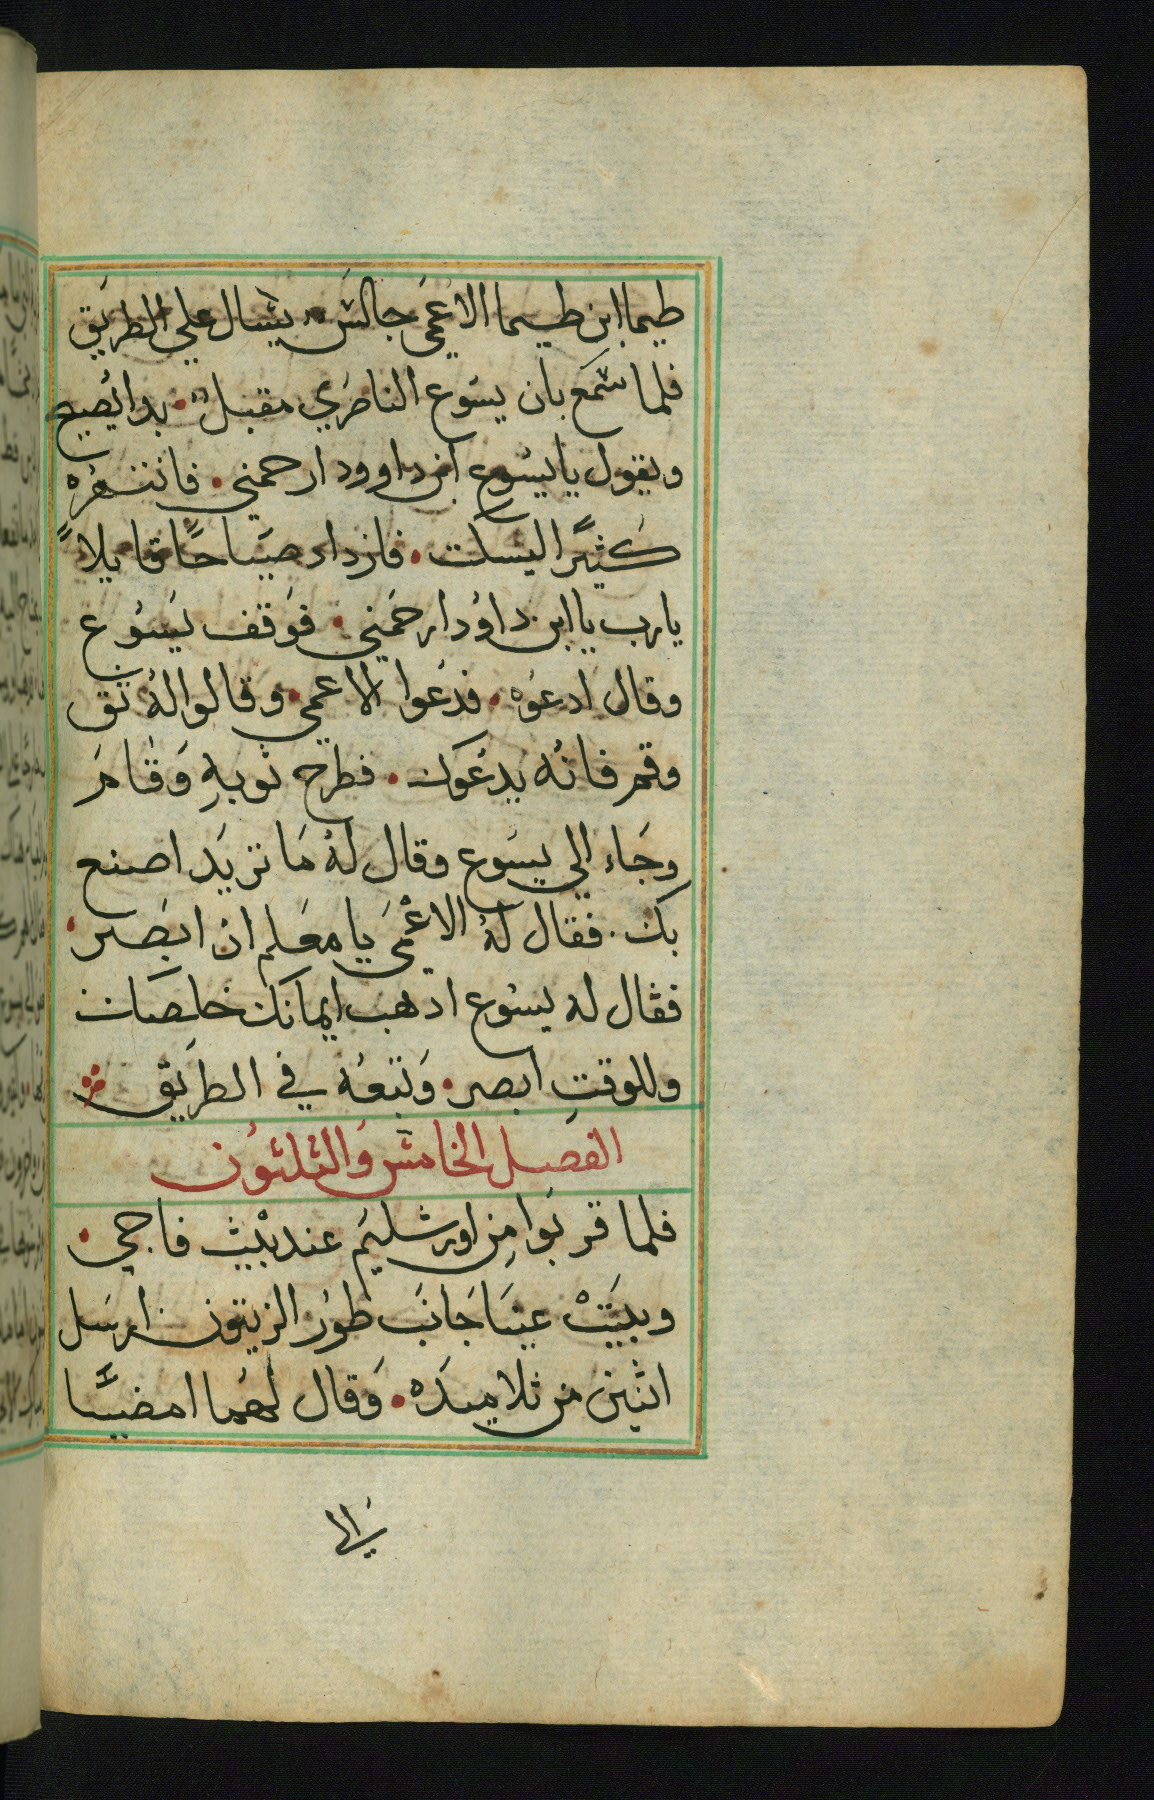 طيما ابن طيما الاعمَى جالسَ يسال علي الطريَق
فلما سَمَع بان يسُوع الناصَري مقبل • بدا يُصيح
ويقول يا يسُوع ابن داوود ارحمني • فانتهَرُه
كَثيًرا ليسكت • فازداد صيَاحًا قايلاً
يارب يا ابن داوُد ارحَمني • فوَقف يَسُوع
وقال ادعُوُه • فدعَوا الاعمي • وقالوا لهُ ثق
وقم فانُه يدعَوك • فطرح ثوبهِ وَقَامَ
وجَاء الي يسَوع وقال لهُ مَا تريَد اصنع
بكَ . فقال لهُ الاعْمَي يا معَلم ان ابصَر •
فقال له يسُوع اذهب ايمانَك خلصَك
وللوقتِ ابصر • وَتبَعُه في الطرَيق
الفصَل الخامسَ وَالثلثوُن
فلما قربَوا مِن اورشليَم عند بْيث فاجي •
وبيَتْ عيَنا جَانَب طوُر الزيتون ارسَل
اثنين من تلاميدَه • وَقال لهُما امضيَا
الي